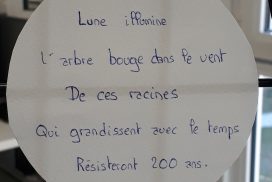 Lune illumine
L'arbre bouge dans le vent
De ces racines
Qui grandissent avec le temps
Résisteront 200 ans.